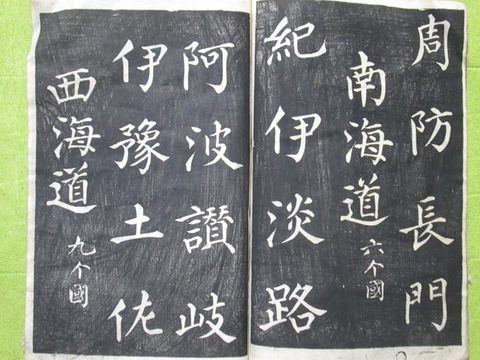 周防長門
南海道六个國
紀伊淡路
阿波讃岐
伊豫土佐
西海道九个國